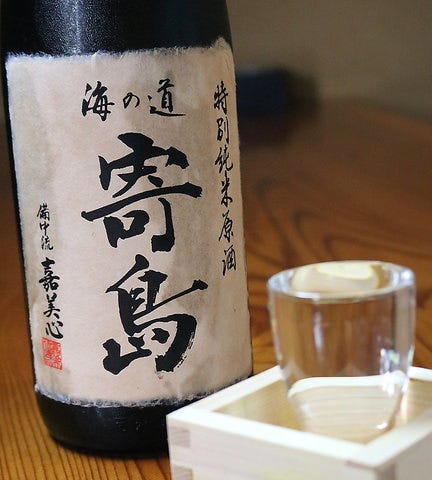 海の道
特別純米原酒
寄島
備中流
嘉美心